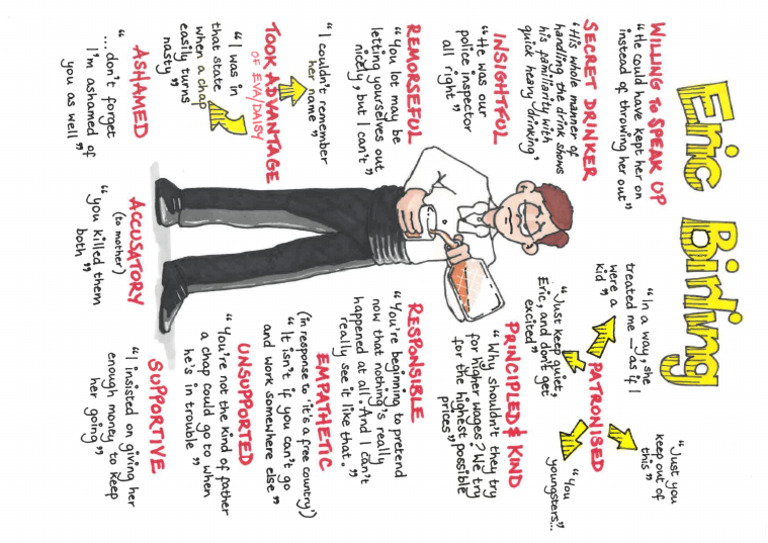 Eric Birling
WILLING TO SPEAK UP
"He could have kept her on
instead of throwing her out"
SECRET DRINKER
'His whole manner of
handling the drink shows
his familiarity with
quick heavy drinking'
INSIGHTFUL
"He was our
police inspector
all right"
REMORSEFUL
"You lot may be
letting yourselves out
nicely, but I can't"
"I couldn't remember
her name"
TOOK ADVANTAGE
OF EVA/DAISY
"I was in
that state
when a chap
easily turns
nasty"
ASHAMED
"...don't forget
I'm ashamed of
you as well"
"Just you
keep out of
this"
"In a way, she
treated me – as if I
were a
kid"
PATRONISED
"You
youngsters..."
"Just keep quiet,
Eric, and don't get
excited"
PRINCIPLED & KIND
"Why shouldn't they try
for higher wages? We try
for the highest possible
prices"
RESPONSIBLE
"You're beginning to pretend
now that nothing's really
happened at all. And I can't
really see it like that."
EMPATHETIC
(in response to 'it's a free country')
"It isn't if you can't go
and work somewhere else"
UNSUPPORTED
"You're not the kind of father
a chap could go to when
he's in trouble"
ACCUSATORY
(to mother)
"you killed them
both"
SUPPORTIVE
"I insisted on giving her
enough money to keep
her going"